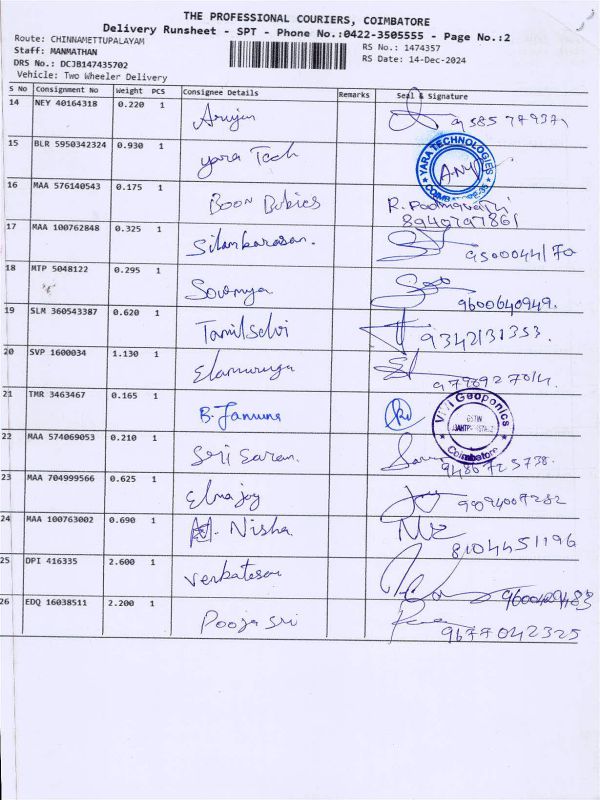 THE PROFESSIONAL COURIERS, COIMBATORE
Delivery Runsheet - SPT - Phone No.:0422-3505555 - Page No.:2
Route: CHINNAMETTUPALAYAM
RS No.: 1474357
Staff: MANMATHAN
RS Date: 14-Dec-2024
DRS No.: DCJB147435702
Vehicle: Two Wheeler Delivery
S No Consignment No Weight PCS Consignee Details Remarks Seal & Signature
14 NEY 40164318 0.220 1 Arujun
15 BLR 5950342324 0.930 1 Yara Tech YARA TECHNOLOGIES
16 MAA 576140543 0.175 1 Boon Bubies R. Padmavathi
8940797861
17 MAA 100762848 0.325 1 Silambarasan.
18 MTP 5048122 0.295 1 Sowmya 9600640949.
19 SLM 360543387 0.620 1 Tamilselvi 9342131353.
20 SVP 1600034 1.130 1 Elamuruga
21 TMR 3463467 0.165 1 B. Jamuna Geoponics GSTIN Coimbatore
22 MAA 574069053 0.210 1 Sri Saran. 9486725738.
23 MAA 704999566 0.625 1 9094007282
24 MAA 100763002 0.690 1 M. Nisha 8104451196
25 DPI 416335 2.600 1 Venkatesan
26 EDQ 16038511 2.200 1 Pooja Sri 9677042325